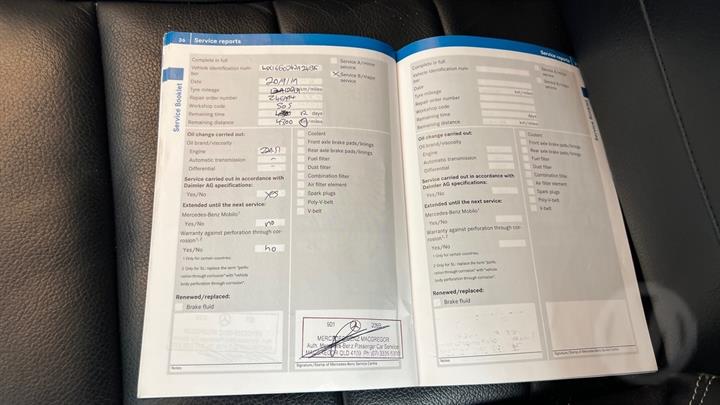 36 Service reports
Complete in full
Vehicle identification num-
ber
Date
20/9/19
Tyre mileage
km/miles
Repair order number
Workshop code
505
Remaining time
12 days
Remaining distance
km/miles
Service A/minor
service
Service B/major
service
Oil change carried out:
Oil brand/viscosity
Engine
Automatic transmission
Differential
Service carried out in accordance with
Daimler AG specifications:
Yes/No
yes
Extended until the next service:
Mercedes-Benz Mobilo¹
Yes/No
no
Warranty against perforation through cor-
rosion¹,²
Yes/No
no
1 Only for certain countries.
2 Only for SL: replace the term "perfo-
ration through corrosion" with "vehicle
body perforation through corrosion".
Renewed/replaced:
Brake fluid
Notes
Coolant
Front axle brake pads/linings
Rear axle brake pads/linings
Fuel filter
Dust filter
Combination filter
Air filter element
Spark plugs
Poly-V-belt
V-belt
MERCEDES-BENZ MACGREGOR
Auth. Mercedes-Benz Passenger Car Service
MACGREGOR QLD 4109 Ph: (07)
Signature/Stamp of Mercedes-Benz Service Centre
Service Booklet
Service reports
Complete in full
Vehicle identification num-
ber
Date
Tyre mileage
km/miles
Repair order number
Workshop code
Remaining time
days
Remaining distance
km/miles
Service A/minor
service
Service B/major
service
Oil change carried out:
Oil brand/viscosity
Engine
Automatic transmission
Differential
Service carried out in accordance with
Daimler AG specifications:
Yes/No
Extended until the next service:
Mercedes-Benz Mobilo¹
Yes/No
Warranty against perforation through cor-
rosion¹,²
Yes/No
1 Only for certain countries.
2 Only for SL: replace the term "perfo-
ration through corrosion" with "vehicle
body perforation through corrosion".
Renewed/replaced:
Brake fluid
Notes
Coolant
Front axle brake pads/linings
Rear axle brake pads/linings
Fuel filter
Dust filter
Combination filter
Air filter element
Spark plugs
Poly-V-belt
V-belt
Signature/Stamp of Mercedes-Benz Service Centre
Service Booklet